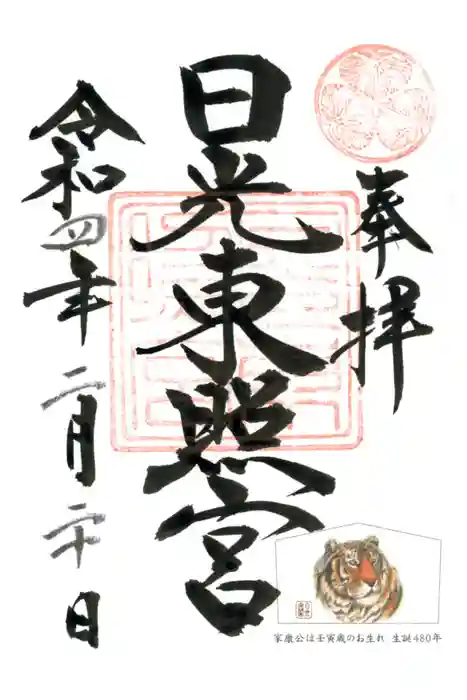 奉拝
日光東照宮
令和四年二月二十日
家康公は壬寅歳のお生れ 生誕480年